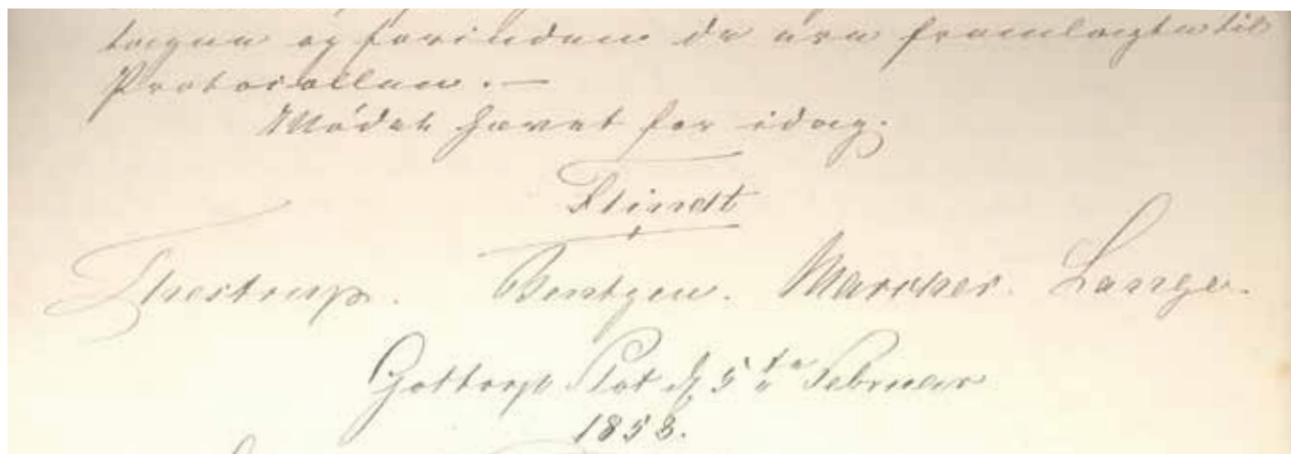 tagne og forinden de ere fremlagte til
Protocollen. —
Mødet hævet for idag.
Flindt
Thestrup. Bentzen. Marcher. Lange.
Gottorp Slot d. 5te Februar
1853.